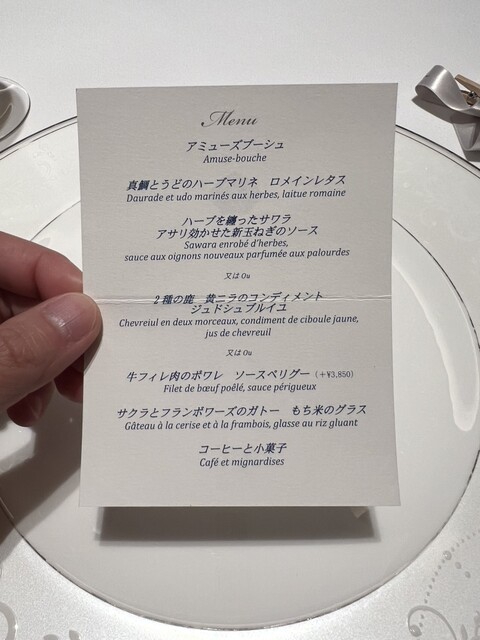 Menu
アミューズブーシュ
Amuse-bouche
真鯛とうどのハーブマリネ　ロメインレタス
Daurade et udo marinés aux herbes, laitue romaine
ハーブを纏ったサワラ
アサリ効かせた新玉ねぎのソース
Sawara enrobé d'herbes,
sauce aux oignons nouveaux parfumée aux palourdes
又は Ou
2種の鹿　黄ニラのコンディメント
ジュドシュブルイユ
Chevreiul en deux morceaux, condiment de ciboule jaune,
jus de chevreuil
又は Ou
牛フィレ肉のポワレ　ソースペリグー（+¥3,850）
Filet de bœuf poêlé, sauce périgueux
サクラとフランボワーズのガトー　もち米のグラス
Gâteau à la cerise et à la frambois, glasse au riz gluant
コーヒーと小菓子
Café et mignardises